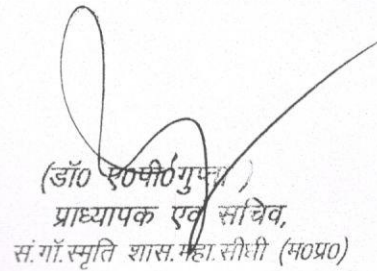 (डॉ0 ए0पी0गुप्ता)
प्राध्यापक एवं सचिव,
सं.गॉ.स्मृति शास.महा.सीधी (म0प्र0)